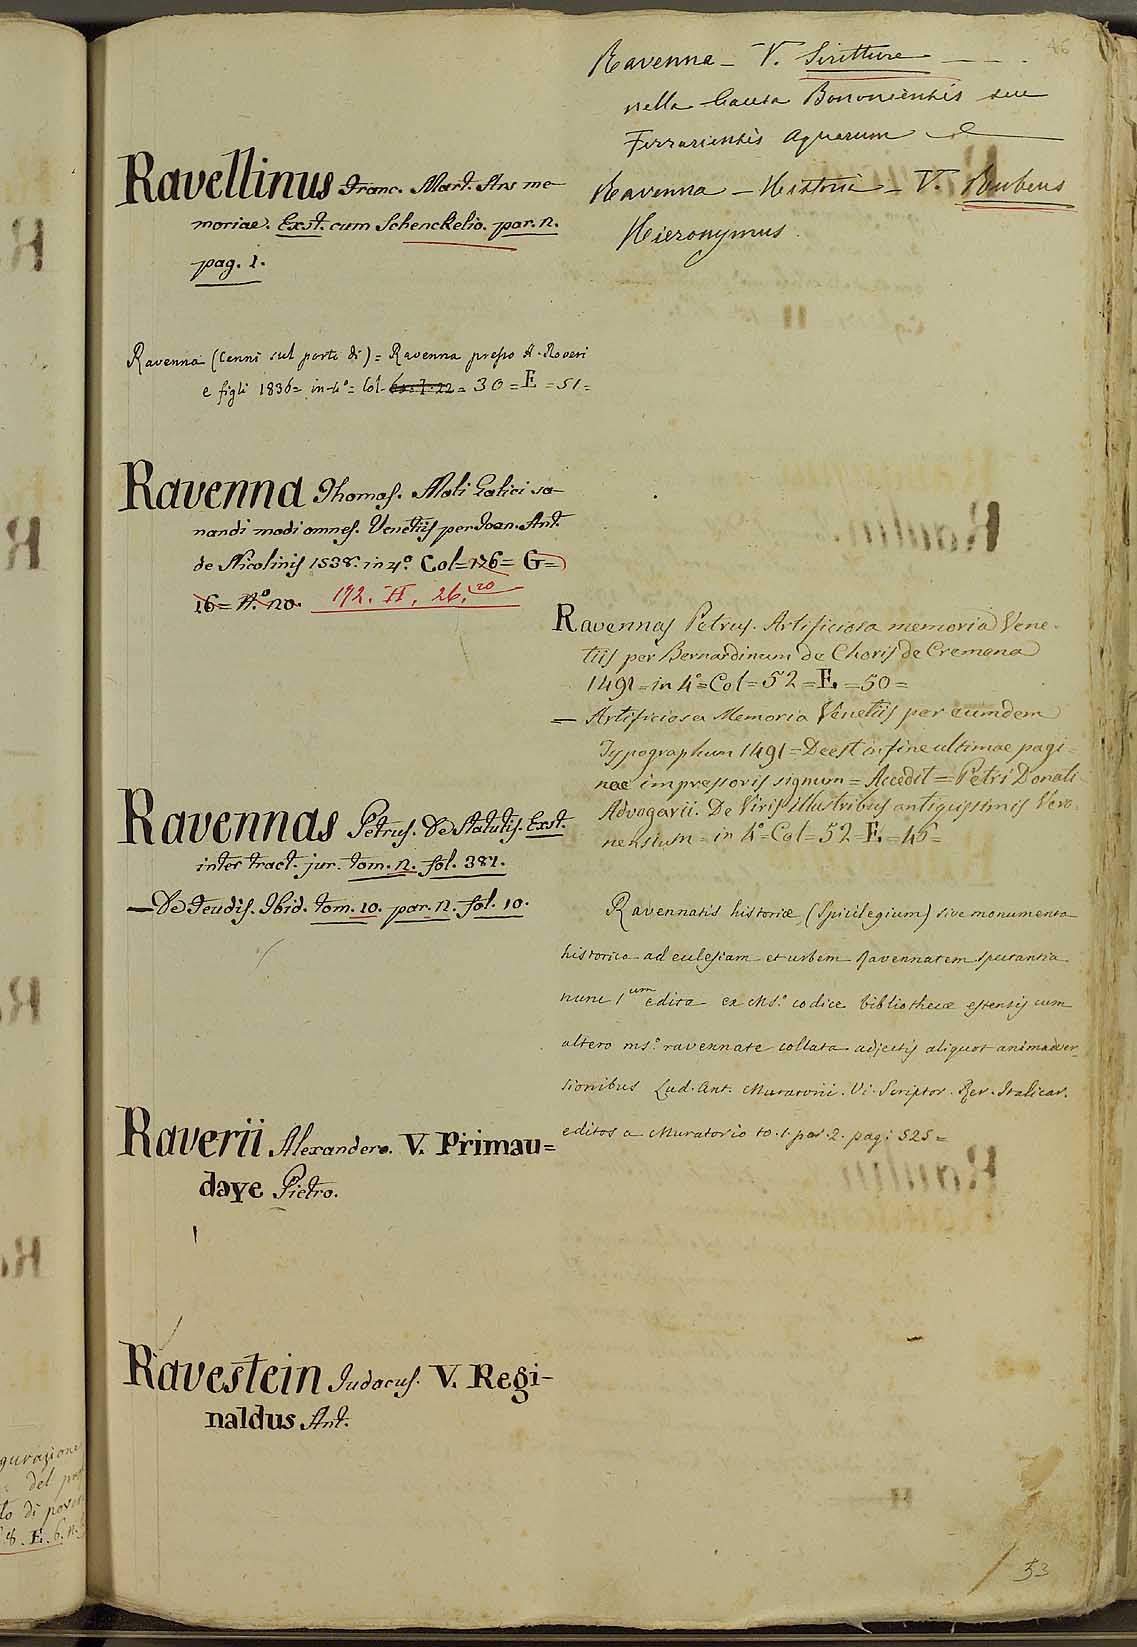 Ravellinus Franc. Mart. Ars me-
moriae. Exst. cum Schenckelio. par. 2.
pag. 1.
Ravenna (Cenni sul porto di) = Ravenna presso A. Roveri
e figli 1836 = in-4° = Col. = 30 = E = 51 =
Ravenna Thomas. Mali Galici sa-
nandi modi omnes. Venetiis per Ioan. Ant.
de Nicolinis 1538. in 4.° Col = 176 = G =
16 = N.° 20. 192. H. 26. 20
Ravennas Petrus. De Statutis. Exst.
inter tract. jur. tom. 2. fol. 387.
— De Feudis. Ibid. tom. 10. par. 2. fol. 10.
Raverii Alexandero. V. Primau=
daye Pietro.
Ravestein Iudocus. V. Regi-
naldus Ant.
46
Ravenna – V. Scritture
nella Causa Bononiensis seu
Ferrariensis Aquarum
Ravenna – Historia – V. Rubeus
Hieronymus.
Ravennas Petrus. Artificiosa memoria Vene-
tiis per Bernardinum de Choris de Cremona
1491 = in 4° = Col = 52 = E = 50 =
— Artificiosa Memoria Venetiis per eumdem
Typographum 1491 = Deest in fine ultimae pagi-
nae impressoris signum = Accedit = Petri Donati
Advogarii. De Viris illustribus antiquissimis Vero-
nensium = in 4° = Col = 52 = E = 45 =
Ravennatis historiæ (Spicilegium) sive monumenta
historica ad eclesiam et urbem Ravennatem spectantia
nunc 1um edita ex Ms.° codice bibliothecæ estensis cum
altero ms.° ravennate collata adjectis aliquot animadver-
sionibus Lud. Ant. Muratorii. Vi. Scriptor. Rer. Italicar.
editos a Muratorio to. 1. par. 2. pag: 525 =
53
gurazione
del
to di
8. E. 6. n.